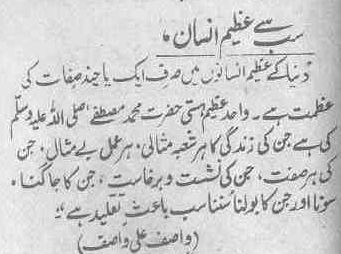 سب سے عظیم انسان ۰
دنیا کے عظیم انسانوں میں صرف ایک یا چند صفات کی
عظمت ہے۔ واحد عظیم ہستی حضرت محمد مصطفےٰ صلی اللہ علیہ وسلم
کی ہے جن کی زندگی کا ہر شعبہ مثالی۔ ہر عمل بے مثال۔ جن
کی ہر صفت، جن کی نشست و برخاست، جن کا جاگنا،
سونا اور جن کا بولنا سننا سب باعثِ تقلید ہے"۔
(واصف علی واصف)